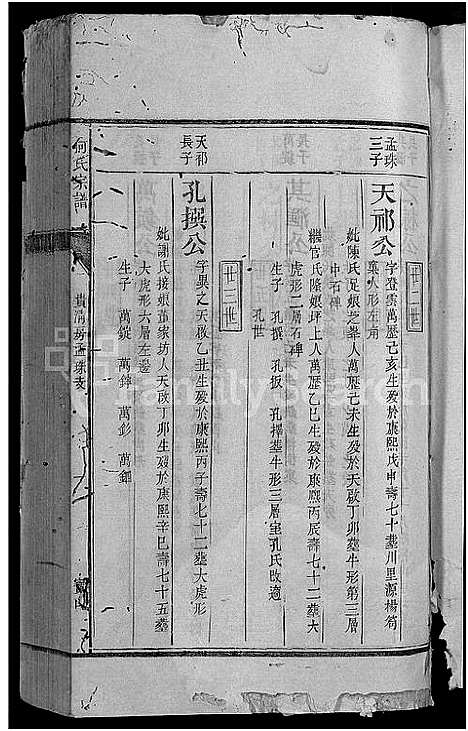 廿二世
孟珠三子
天祁公
字登雲萬歷己亥生歿於康熙戊申壽七十塟川里源楊筒
窠人形左角
妣陳氏足娘之峯人萬歷己未生歿於天啟丁卯塟牛形第三層
中石碑
繼官氏隆娘坪上人萬歷乙巳生歿於康熙丙辰壽七十二塟大
虎形二層石碑
生子 孔撰 孔扳 孔擇塟牛形三層室孔氏改適
孔世
廿三世
天祁長子
孔撰公
字異之天啟乙丑生歿於康熙丙子壽七十二塟大虎形
妣謝氏接娘黃家坊人天啟丁卯生歿於康熙辛巳壽七十五塟
大虎形六層左邊
生子 萬錠 萬錚 萬彭 萬鈿
何氏宗譜
貴清房孟珠支
FamilySearch